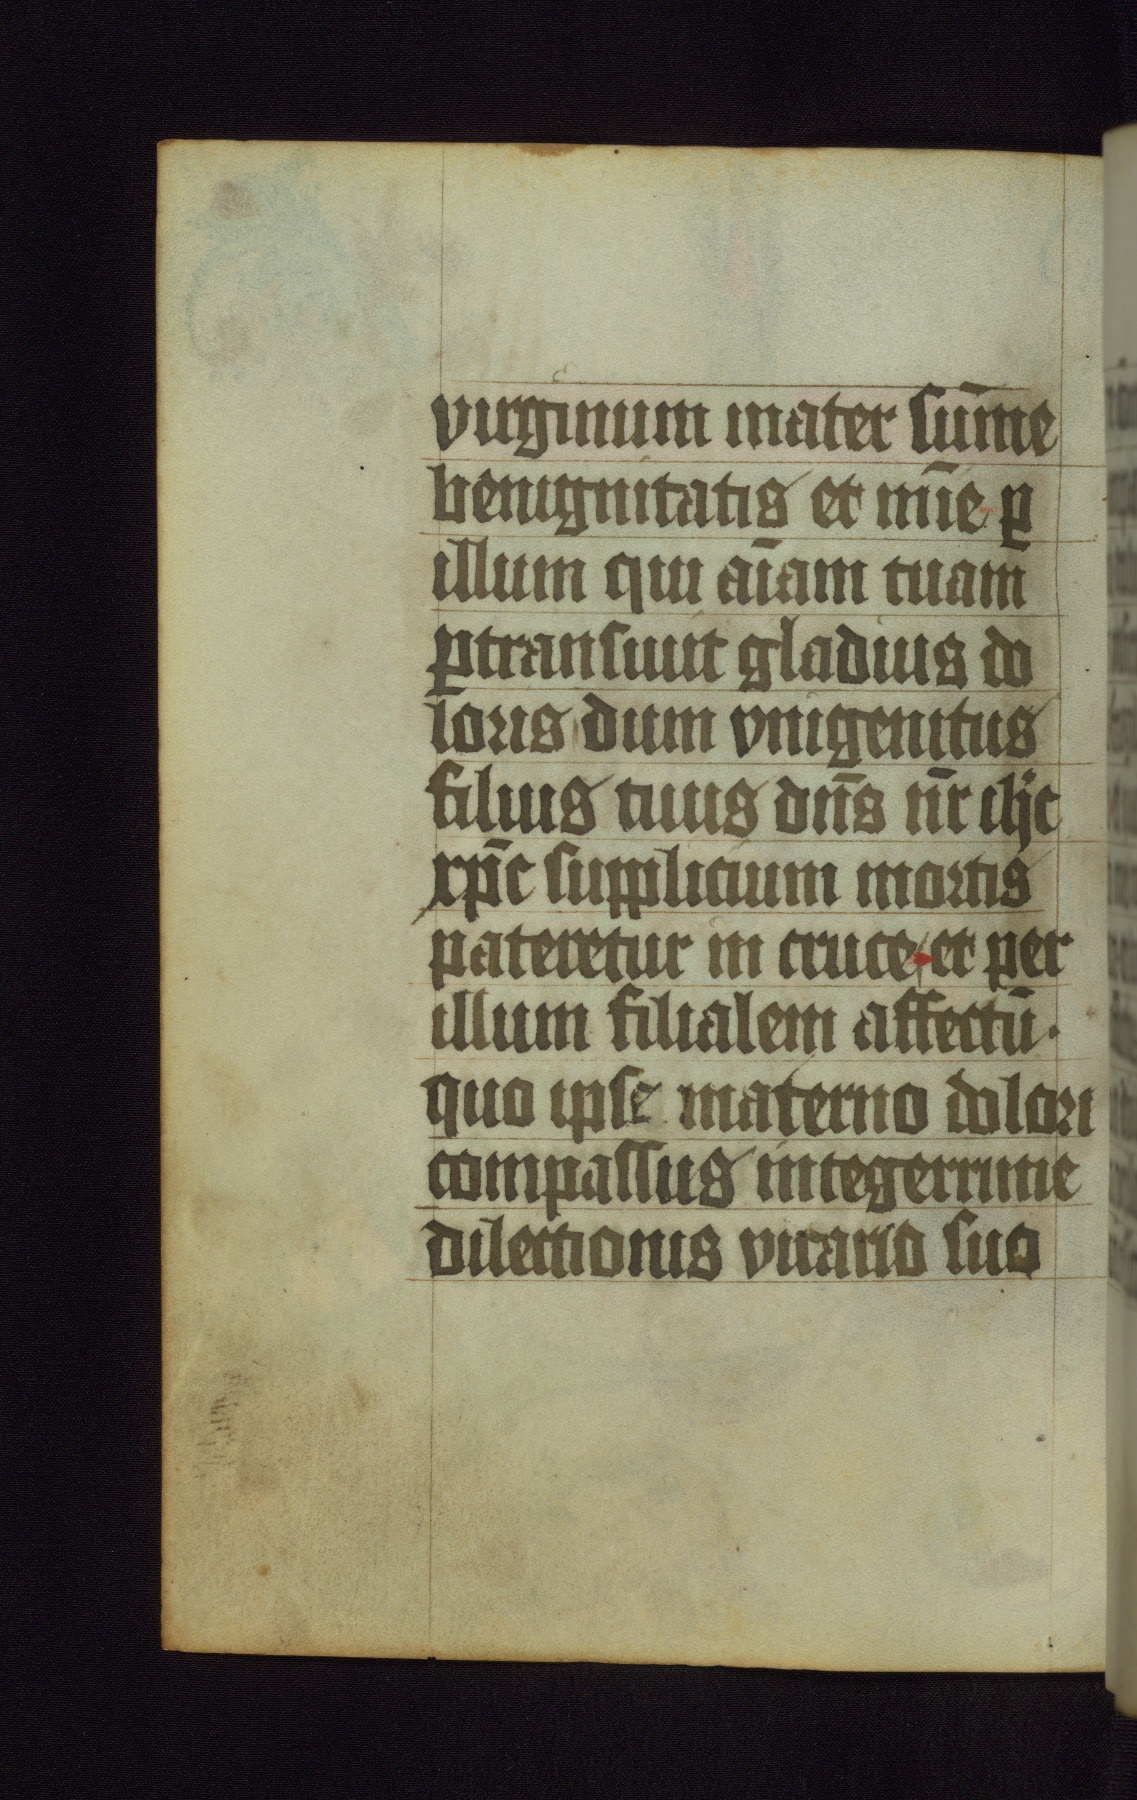 virginum mater sum̄me
benignitatis et mīe ꝑ
illum qui aīam tuam
ꝑtransiuit gladius do
loris dum vnigenitus
filius tuus dn̄s nr̄ ihc̄
xp̄c supplicium mortis
pateretur in cruce et per
illum filialem affectū·
quo ipse materno dolori
compassus integerrime
dilectionis vicario suo